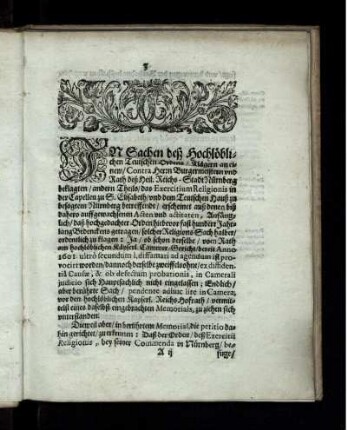 3
IN Sachen deß Hochlöbli-
chen Teutschen-Ordens / Klägern an ei-
nem / Contra Herrn Burgermeistern und
Rath deß Heil. Reichs-Stadt Nürnberg
beklagten / andern Theils / das Exercitium Religionis in
der Capellen zu S. Elisabeth / und dem Teutschen Hauß zu
besagtem Nürnberg betreffend / erscheinet auß denen biß
dahero auffgewachsenen Acten und actitaten, Anfäng-
lich / daß hochgedachter-Orden hiebevor fast hundert Jahr
lang Bedenckens getragen / solcher Religions-Sach halber /
ordentlich zu klagen: Ja / ob schon derselbe / vom Rath
am hochlöblichen Käyserl. Cammer-Gericht / bereit Anno
1601. ultrò secundum l. diffamari ad agendum ist pro-
vocirt worden / dannoch derselbe zweiffelsohne / ex diffiden-
tiâ Causæ, & ob defectum probationis, in Camerali
judicio sich Hauptsächlich nicht eingelassen; Endlich /
aber berührte Sach / pendente adhuc lite in Camera,
vor den hochlöblichen Kayserl. Reichs Hofrath / vermit-
telst eines daselbst eingebrachten Memorials, zu ziehen sich
unterstanden.
Dieweil aber / in berührtem Memorial, die petitio da-
hin gerichtet / zu erkennen: Daß der Orden / deß Exercitii
Religionis, bey seiner Commenda in Nürnberg / be-
A ij
fugt /